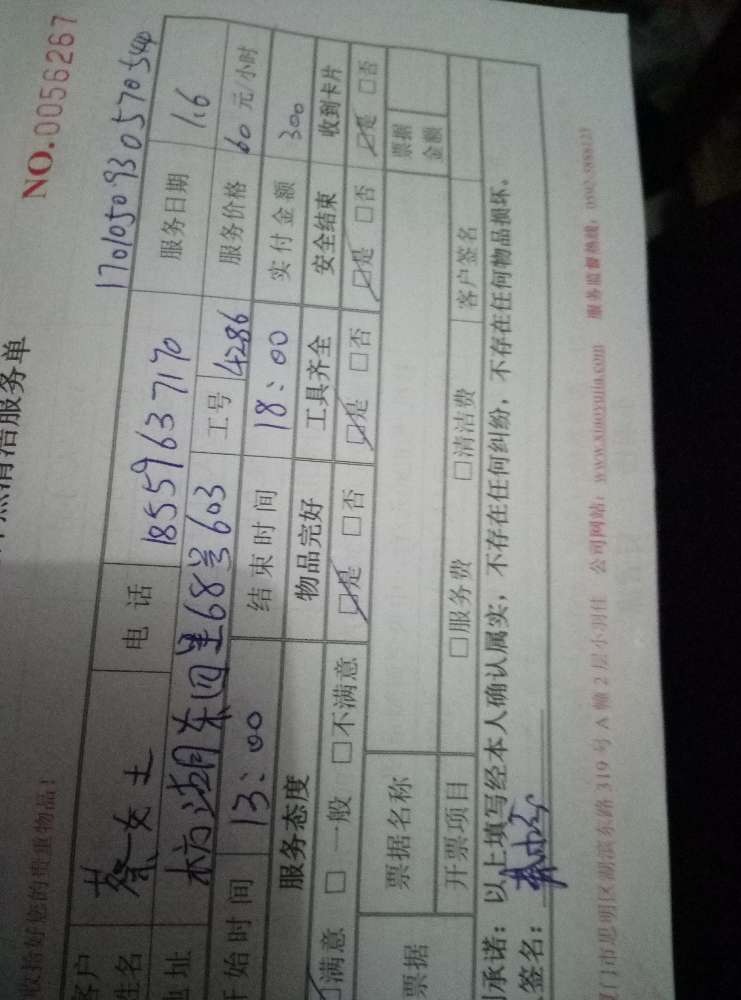 清洁服务单
NO.0056267
收拾好您的贵重物品！
17010509305705440
客户姓名 蔡女士 电话 18559637170 服务日期 1.6
地址 枋湖东四里68号603 工号 4286 服务价格 60元/小时
开始时间 13:00 结束时间 18:00 实付金额 300
服务态度 物品完好 工具齐全 安全结束 收到卡片
☑满意 □一般 □不满意 ☑是 □否 ☑是 □否 ☑是 □否 ☑是 □否
票据 票据名称 票据金额
开票项目 □服务费 □清洁费 客户签名
承诺：以上填写经本人确认属实，不存在任何纠纷，不存在任何物品损坏。
签名：
门市思明区湖滨东路319号A幢2层小羽佳 公司网站：www.xiaoyujia.com 服务监督热线：0592-5888123